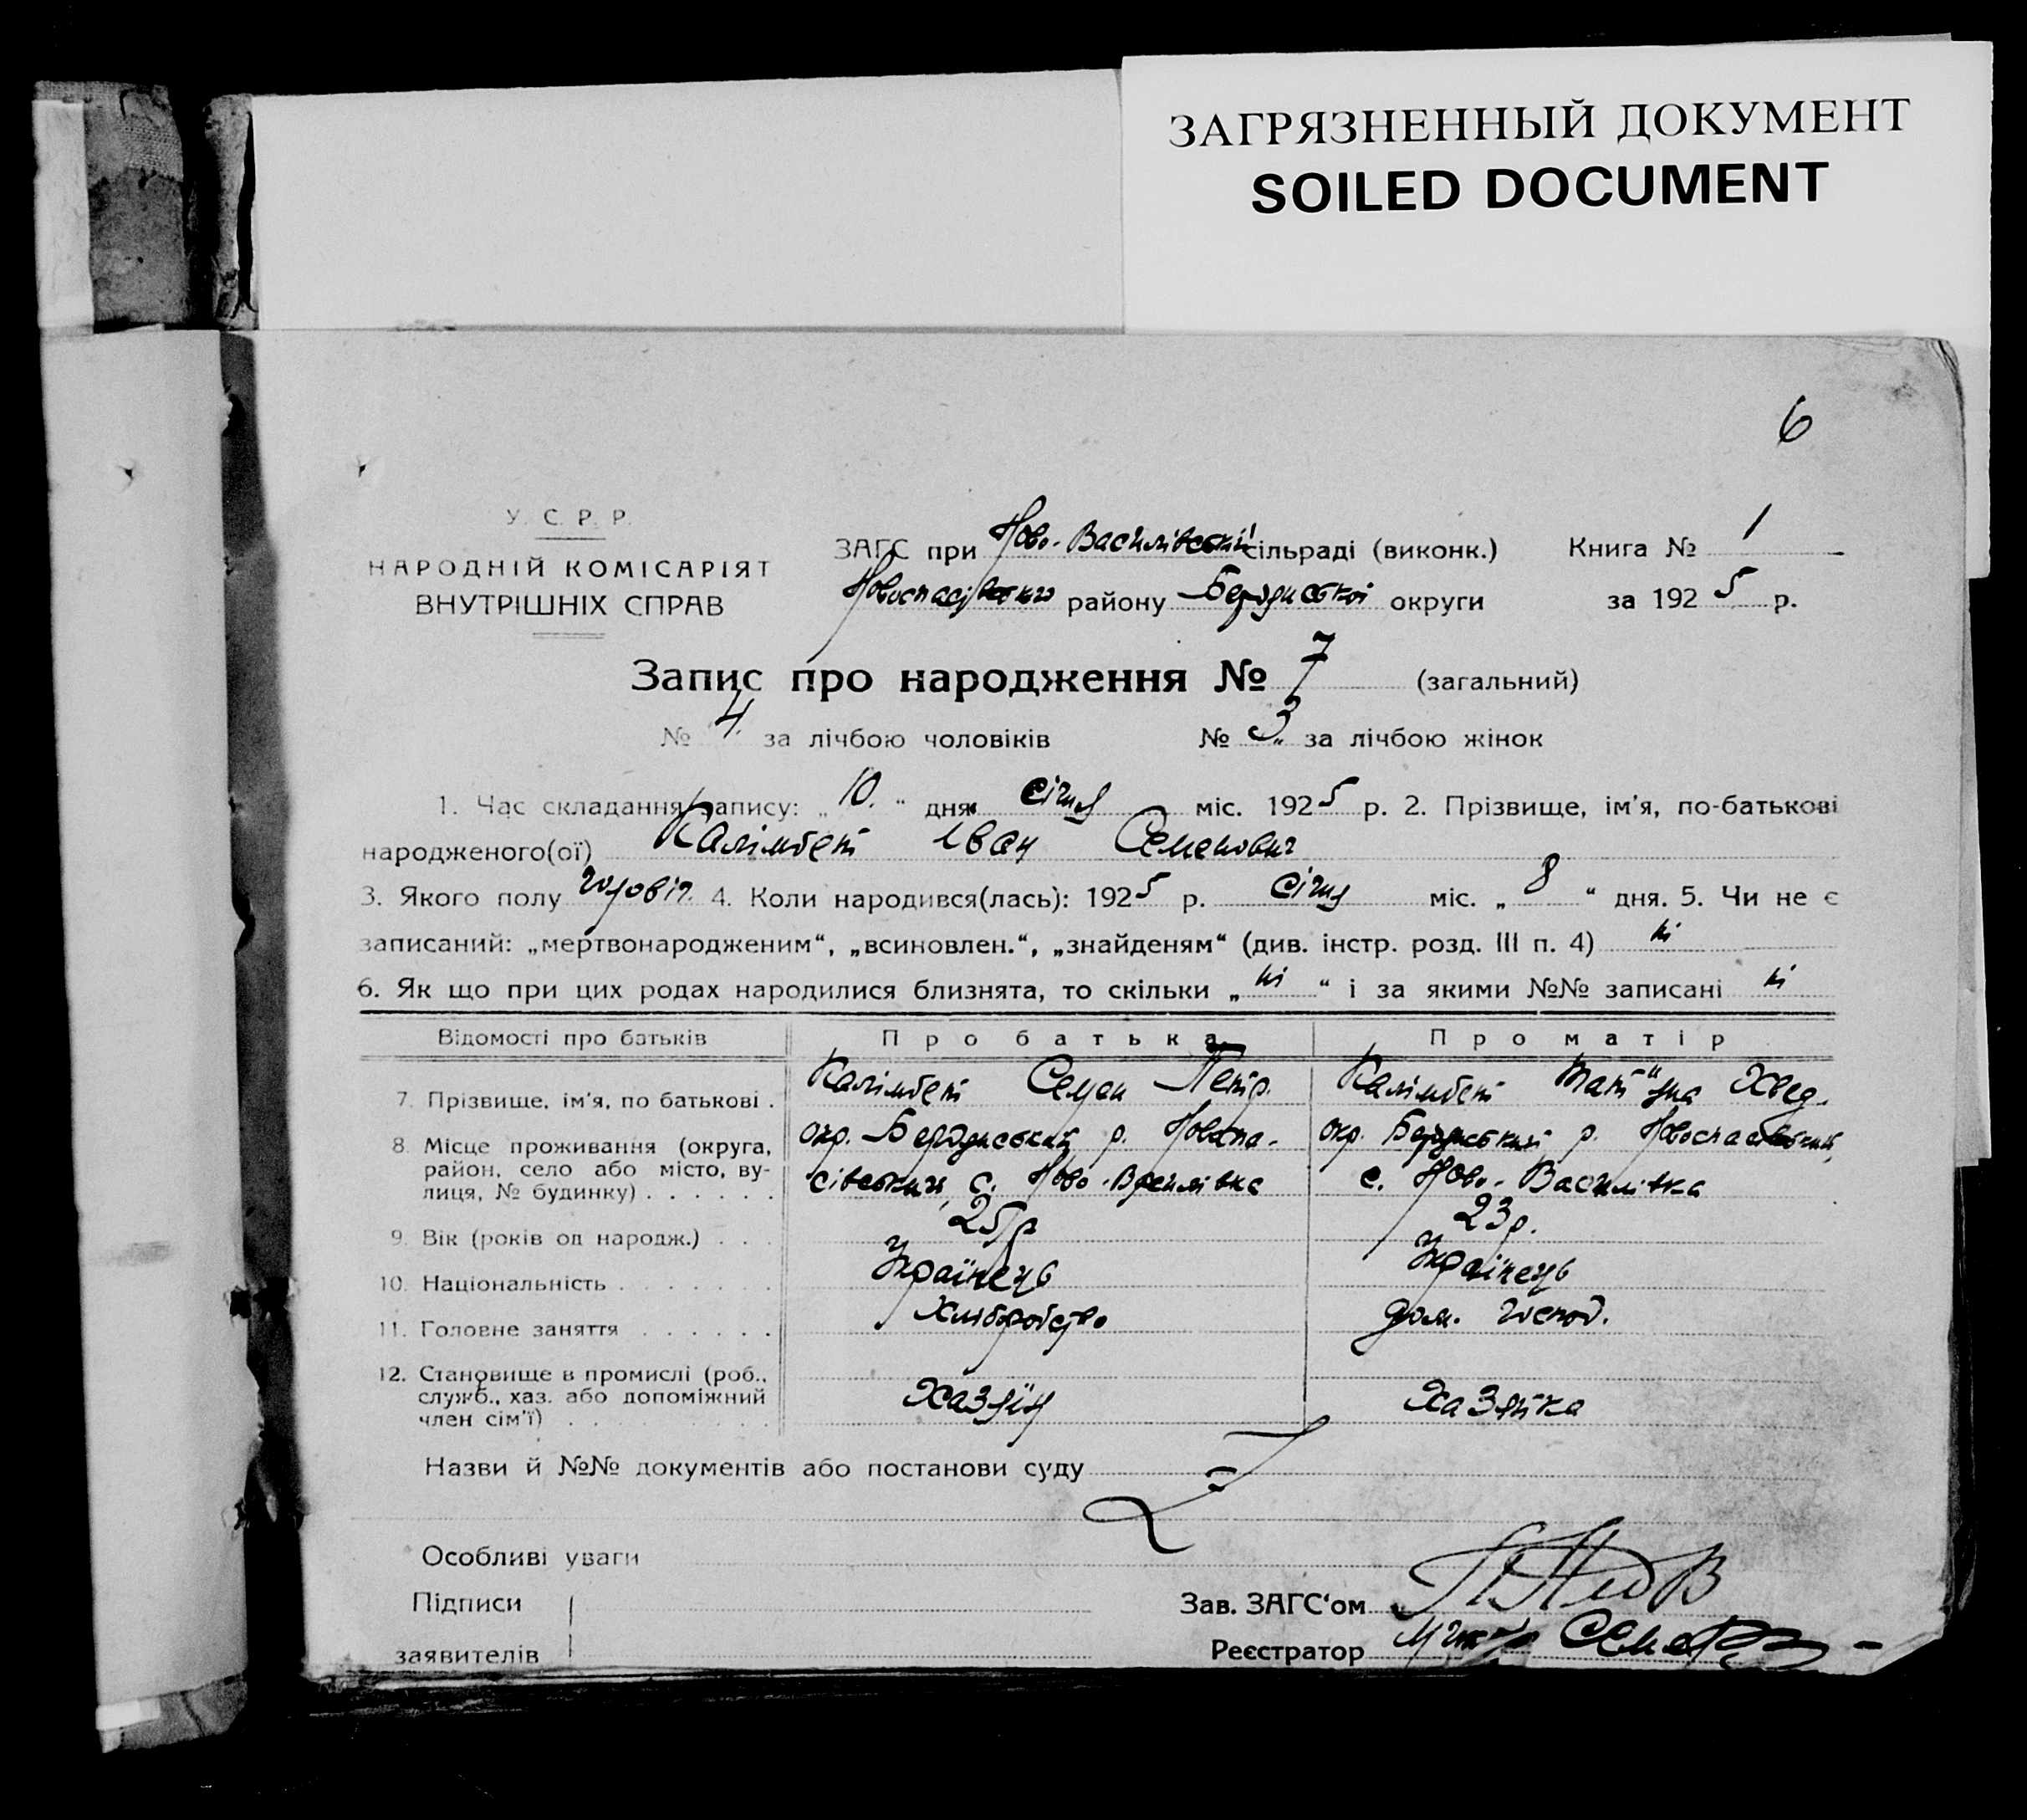 ЗАГРЯЗНЕННЫЙ ДОКУМЕНТ
SOILED DOCUMENT
6
У. С. Р. Р.
НАРОДНІЙ КОМІСАРІЯТ
ВНУТРІШНІХ СПРАВ
ЗАГС при Ново-Василівській сільраді (виконк.) Книга № 1
Новоспасівського району Бердянської округи за 1925 р.
Запис про народження № 7 (загальний)
№ 4 за лічбою чоловіків № 3 за лічбою жінок
1. Час складання запису: „ 10. “ дня січня міс. 1925 р. 2. Прізвище, ім'я, по-батькові
народженого(ої) Калімбет Іван Семенович
3. Якого полу чоловіч. 4. Коли народився(лась): 1925 р. січня міс. „ 8 “ дня. 5. Чи не є
записаний: „мертвонародженим“, „всиновлен.“, „знайденям“ (див. інстр. розд. III п. 4) ні
6. Як що при цих родах народилися близнята, то скільки „ ні “ і за якими №№ записані ні
Відомості про батьків Про батька Про матір
7. Прізвище, ім'я, по батькові . Калімбет Семен Петр. Калімбет Тат"яна Хвед.
8. Місце проживання (округа, окр. Бердянський р. Новоспа- окр. Бердянський р. Новоспасівський,
район, село або місто, ву-
лиця, № будинку) . . . . . . сівський, с. Ново-Василівка с. Ново-Василівка
9. Вік (років од народж.) . . . 25 р 23 р.
10. Національність . . . . . . . Українець Українець
11. Головне заняття . . . . . . Хліборобство дом. господ.
12. Становище в промислі (роб.,
служб., хаз. або допоміжний Хазяїн Хазяйка
член сім'ї) . . . . . . . . .
Назви й №№ документів або постанови суду
Особливі уваги
Підписи Зав. ЗАГС'ом
заявителів Реєстратор